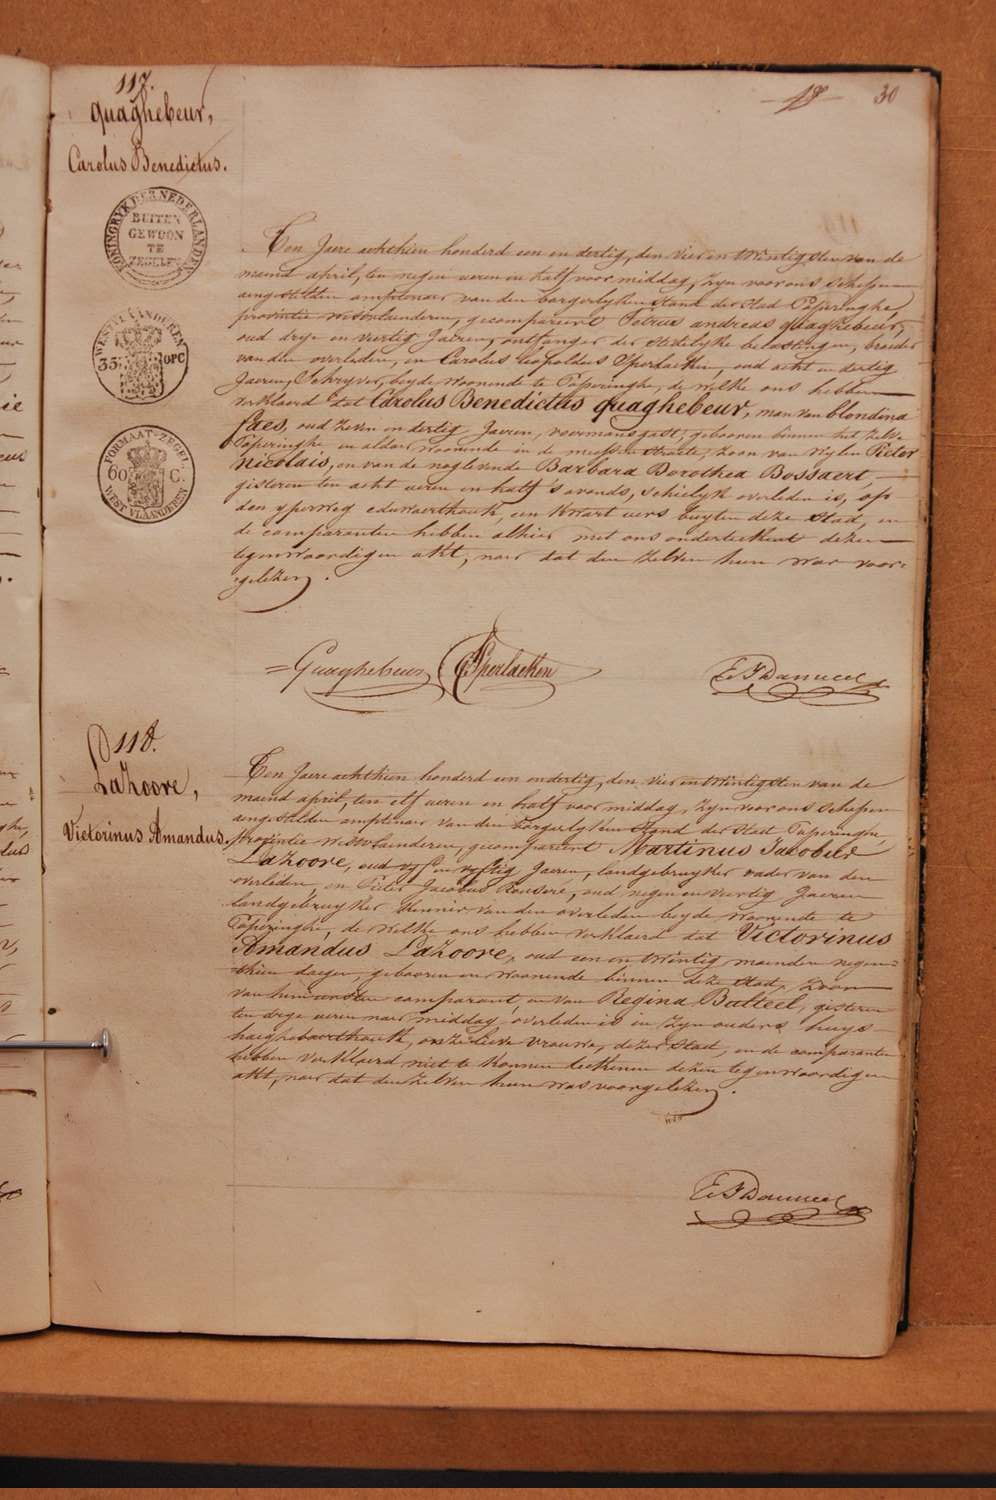 117.
quaghebeur,
Carolus Benedictus.
KONINGRYK DER NEDERLANDEN
BUITEN
GEWOON
TE
ZEGELEN
WEST VLAANDEREN
35 OPC
FORMAAT-ZEGEL
60 C.
WEST VLAANDEREN
18 30
Ten Jaere achthien honderd een en dertig, den vier en twintigsten van de
maend april, ten negen ueren en half voor middag, zyn voor ons Schepen
aengestelden amptenaer van den borgerlyken stand der stad Poperinghe,
provintie Westvlaenderen, gecompareert Petrus andreas quaghebeur,
oud dry en veertig Jaeren, ontfanger der stedelyke belastingen, broeder
van den overleden, en Carolus Leopoldus Sperlaeken, oud acht en dertig
Jaeren, Schryver, beyde woonende te Poperinghe, de welke ons hebben
verklaerd dat Carolus Benedictus quaghebeur, man van blondina
faes, oud zeven en dertig Jaeren, voermansgast, gebooren binnen het zelve
Poperinghe en aldaer woonende in de straete, zoon van wylen Pieter
Nicolais, en van de naglevende Barbara Dorothea Bossaert,
gisteren ten acht ueren en half 's avonds, schielyk overleden is, op
den yperweg edewaerthoek, een kwart uers buyten deze stad, en
de comparanten hebben alhier met ons onderteekent dezen
tegenwoordigen akt, naer dat den zelven hun was voor-
gelezen.
Quaghebeur Sperlaeken E F Danneel
118.
LaHoore,
Victorinus Amandus.
Ten Jaere achthien honderd een en dertig, den vier en twintigsten van de
maend april, ten elf ueren en half voor middag, zyn voor ons Schepen
aengestelden amptenaer van den borgerlyken stand der stad Poperinghe,
provintie Westvlaenderen, gecompareert Martinus Jacobus
LaHoore, oud vyf en veftig Jaeren, landgebruyker vader van den
overleden, en Pieter Jacobus , oud negen en viertig Jaeren
landgebruyker kennis van den overleden beyde woonende te
Poperinghe, de welke ons hebben verklaerd dat Victorinus
Amandus LaHoore, oud een en twintig maenden negen-
thien daegen, gebooren en woonende binnen deze stad, zoon
van hun eersten comparant, en van Regina Batteel, gisteren
ten dry ueren naer middag, overleden is in zyn ouders huys
haeghebaerthoek, onze lieve vrouwe, dezer stad, en de comparanten
hebben verklaerd niet te konnen teekenen dezen tegenwoordigen
akt, naer dat den zelven hun was voorgelezen.
E F Danneel